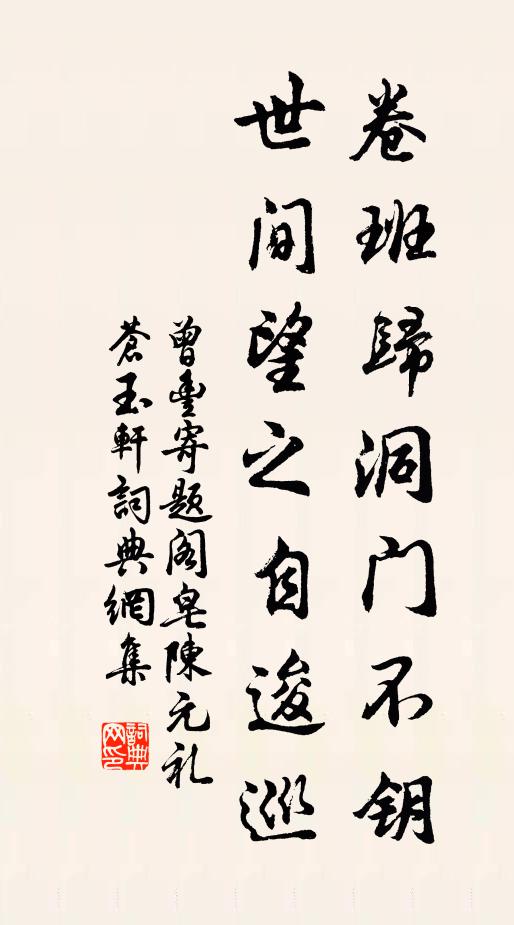 卷班歸洞门不钥
世间望之自逡巡
曾豊寄题阁皂陳元礼
蒼玉軒詞典網集
詞典网印